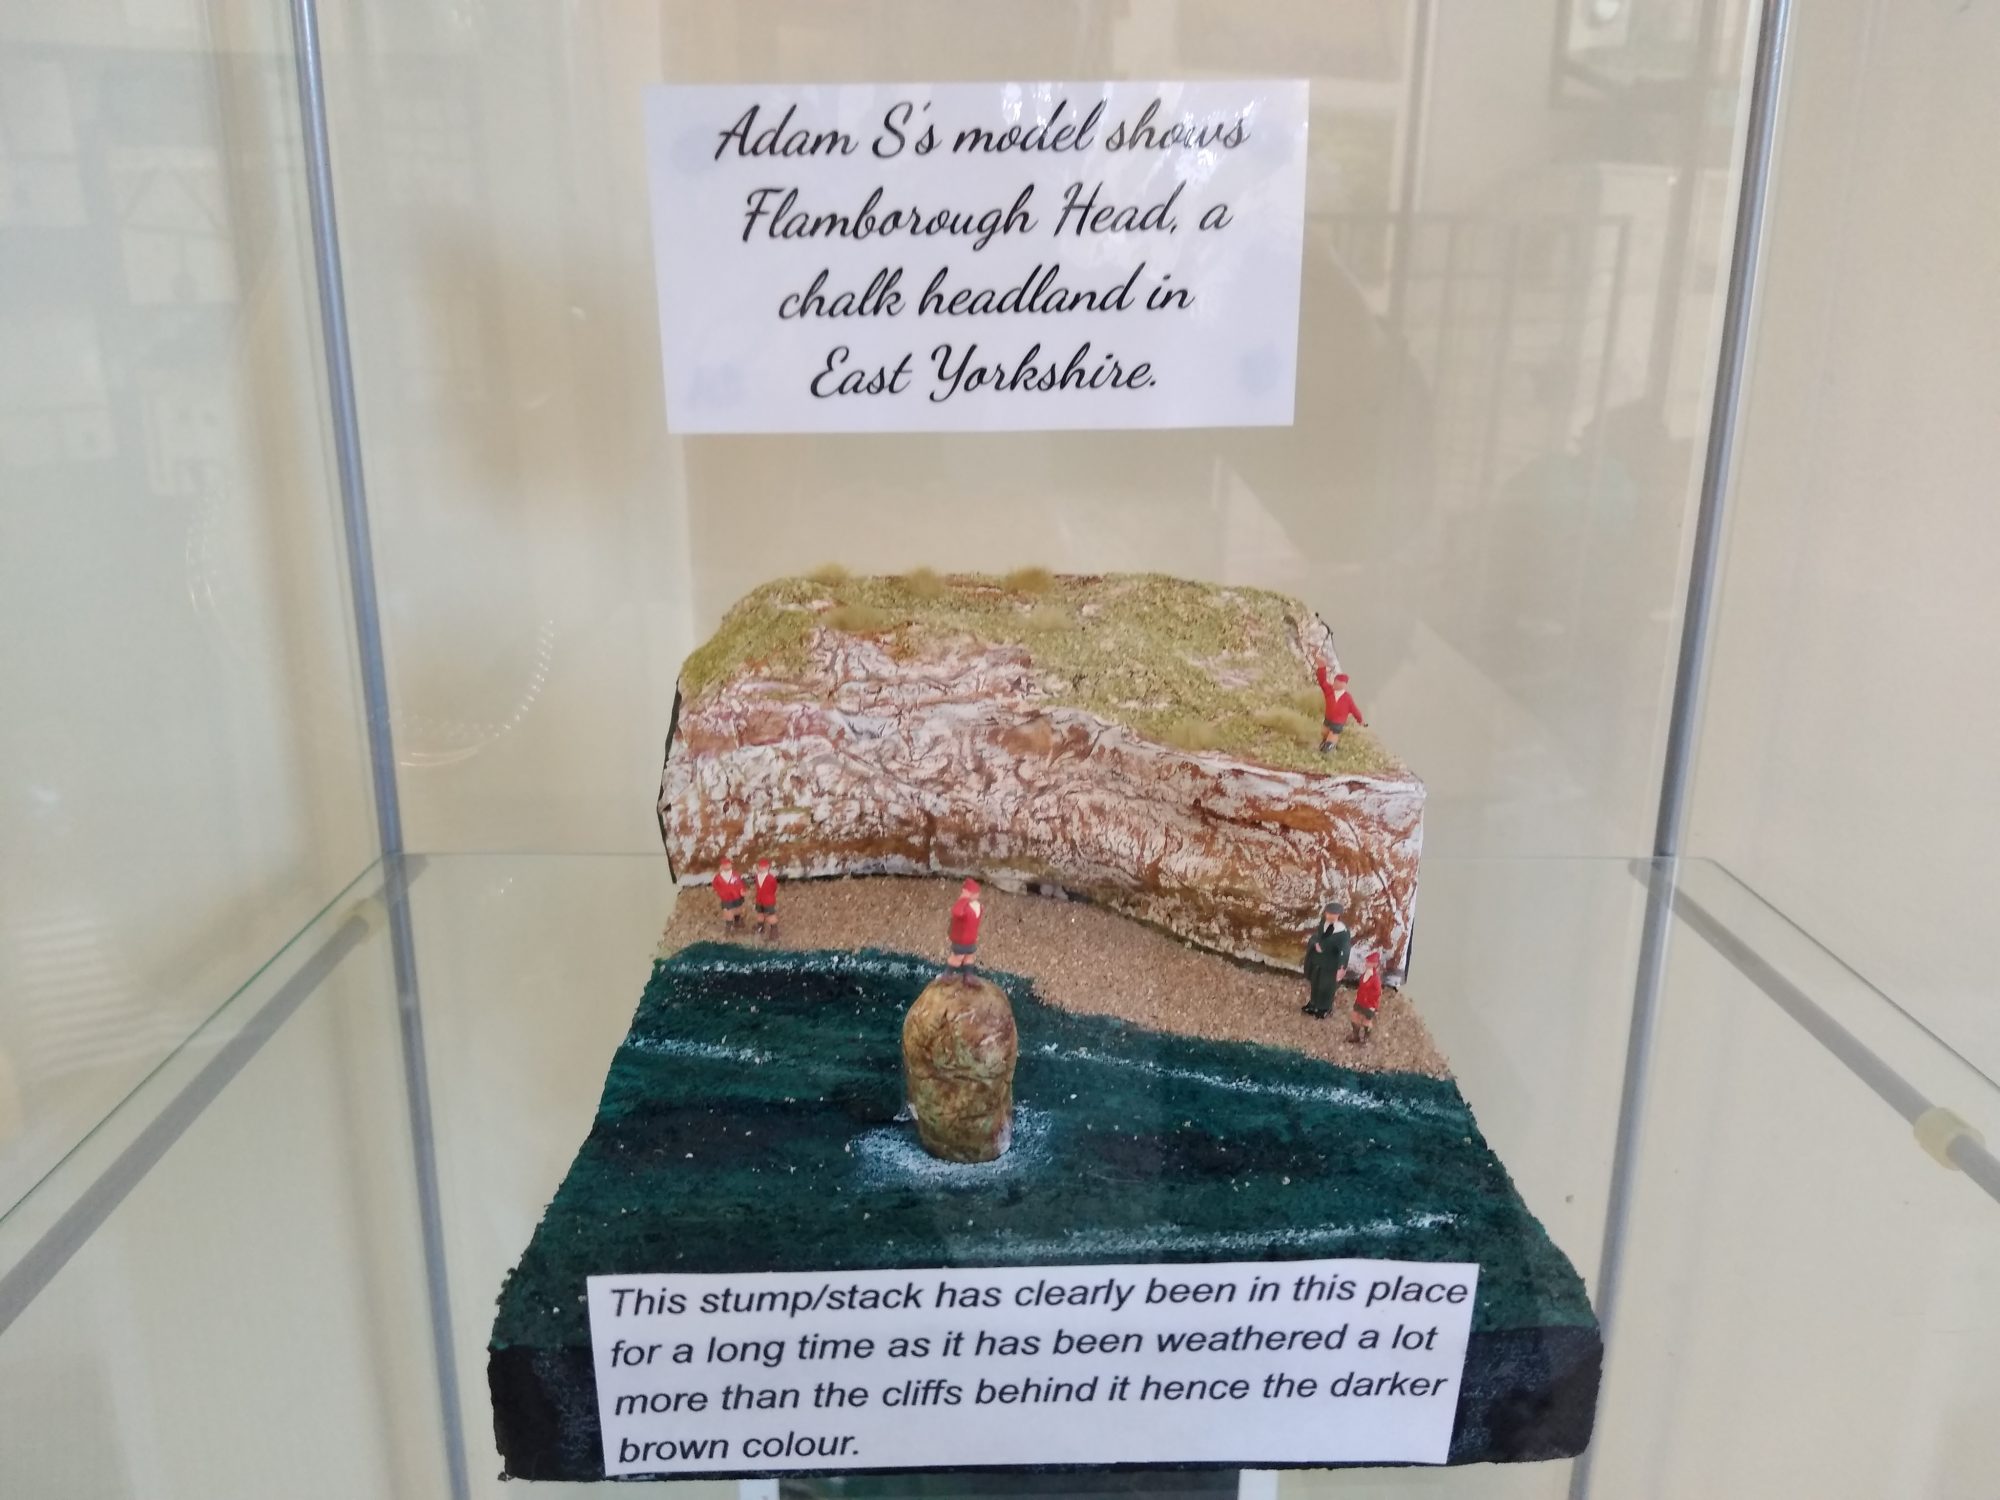 Adam S's model shows
Flamborough Head, a
chalk headland in
East Yorkshire.
This stump/stack has clearly been in this place
for a long time as it has been weathered a lot
more than the cliffs behind it hence the darker
brown colour.